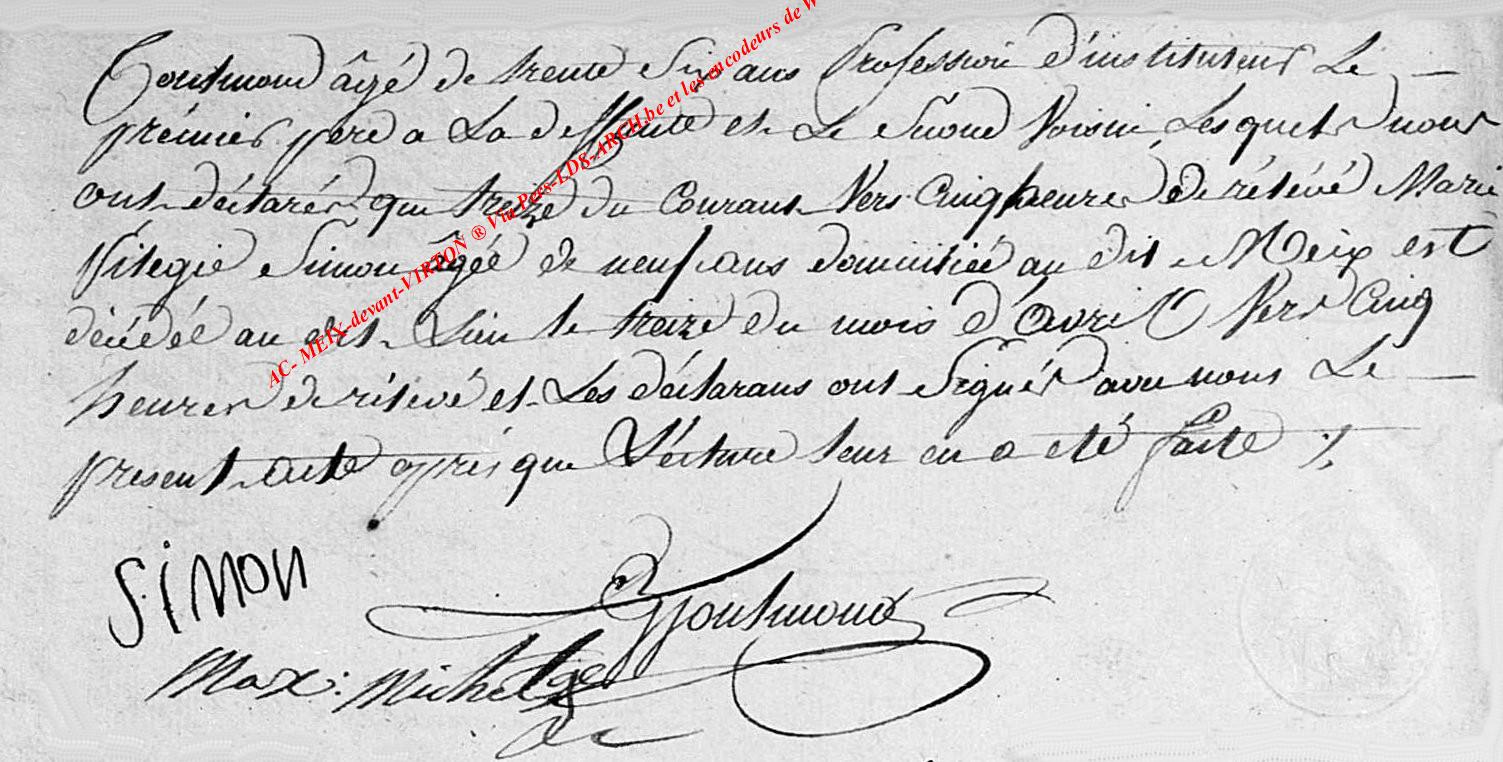 Goutmond âgé de trente Six ans Profession d'instituteur Le —
prémier pere a La deffunte et Le Second Voisin Lesquels nous
ont déclarés que treize du Courant Vers Cinq heures de rélévé Marie
Pélagie Simon âgée de neuf ans domiciliée au dit Meix est
décédée au dit Lieu le treize du mois d'Avril Vers Cinq
heures de rélévé et Les déclarans ont Signés avec nous Le —
present acte après que Lécture leur en a été faite
Simon
Goutmond
Max: Michel
AC- MEIX-devant-VIRTON ® Via Pers-LDS-ARCH.be et les encodeurs de